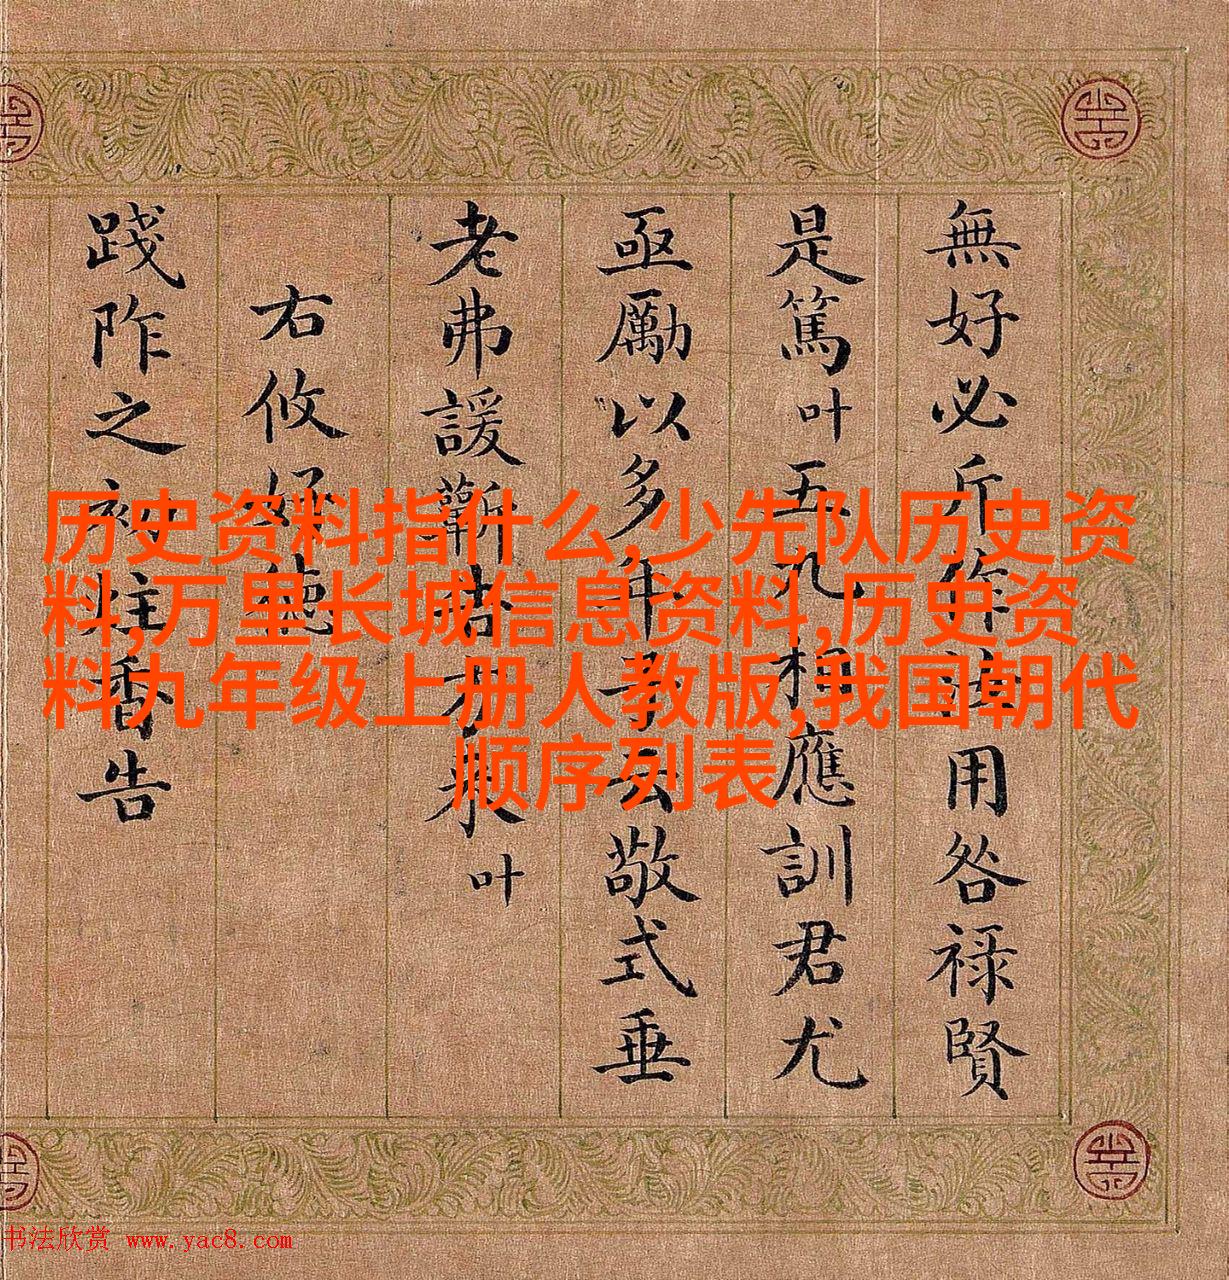 历史资料指什么,少先队历史资
料,万里长城信息资料,历史资
料九年级上册人教版,我国朝代
顺序列表
無好必作汝用咎禄賢
是篤叶五九相應訓君尤
亟勵以多年予云敬式垂
老弗諼蘄者方叶
右攸好德
踐阼之初炷香告
书法欣赏 www.yac8.com